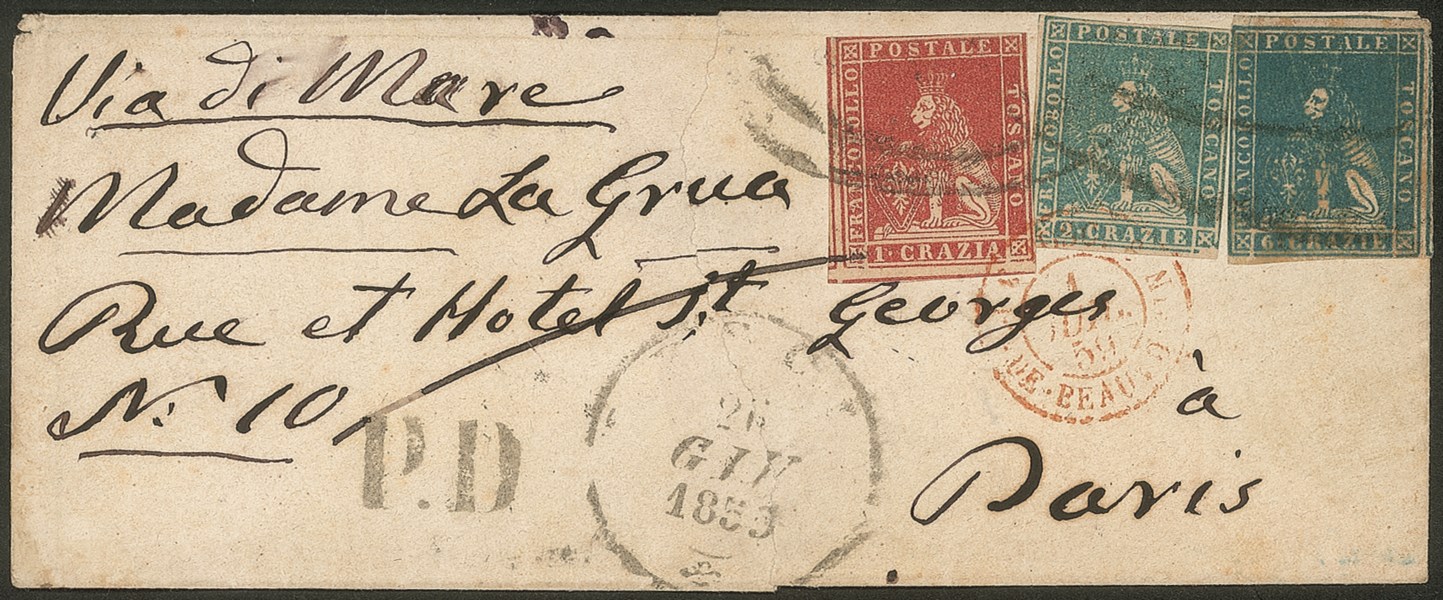 Via di Mare
Madame La Grua
Rue et Hotel St Georges
N. 10,
à
Paris
FRANCOBOLLO POSTALE TOSCANO
1. CRAZIA
FRANCOBOLLO POSTALE TOSCANO
2. CRAZIE
FRANCOBOLLO POSTALE TOSCANO
6. CRAZIE
P.D
26
GIU
1
59
DE-BEAUV